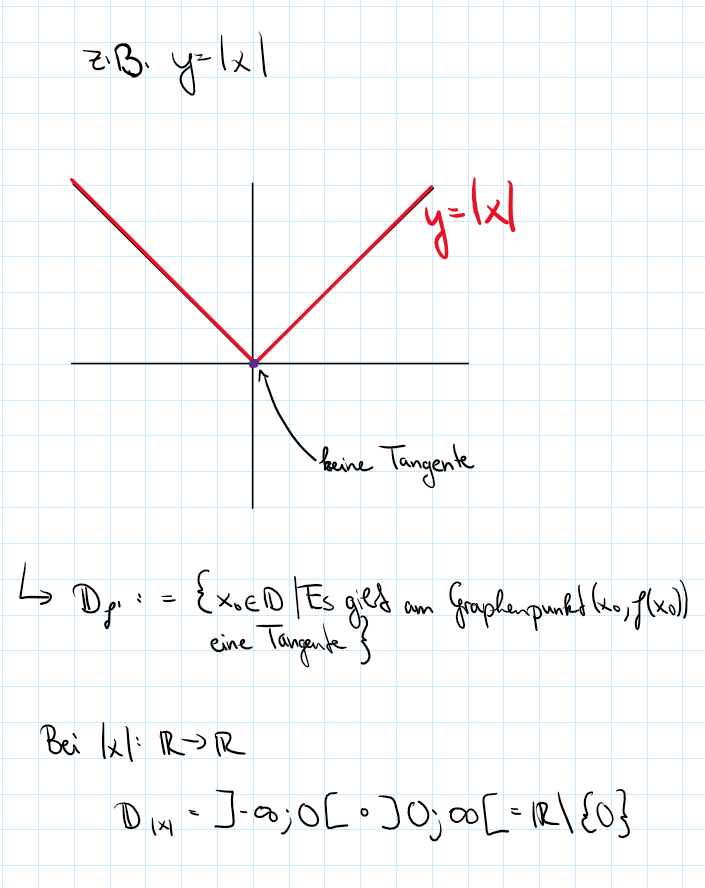 z.B. y=|x|
y=|x|
keine Tangente
↳ 𝔻f' := {x₀∈𝔻 | Es gibt am Graphenpunkt (x₀, f(x₀))
eine Tangente}
Bei |x|: ℝ→ℝ
𝔻|x| = ]-∞;0[ ∘ ]0;∞[ = ℝ\{0}